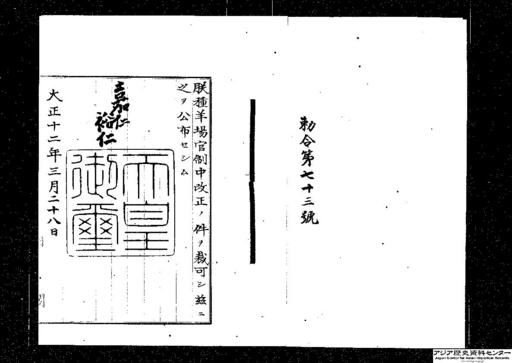 勅令第七十三號
朕種羊場官制中改正ノ件ヲ裁可シ茲ニ
之ヲ公布セシム
嘉仁
裕仁
天皇
御璽
大正十二年三月二十八日
アジア歴史資料センター
Japan Center for Asian Historical Records